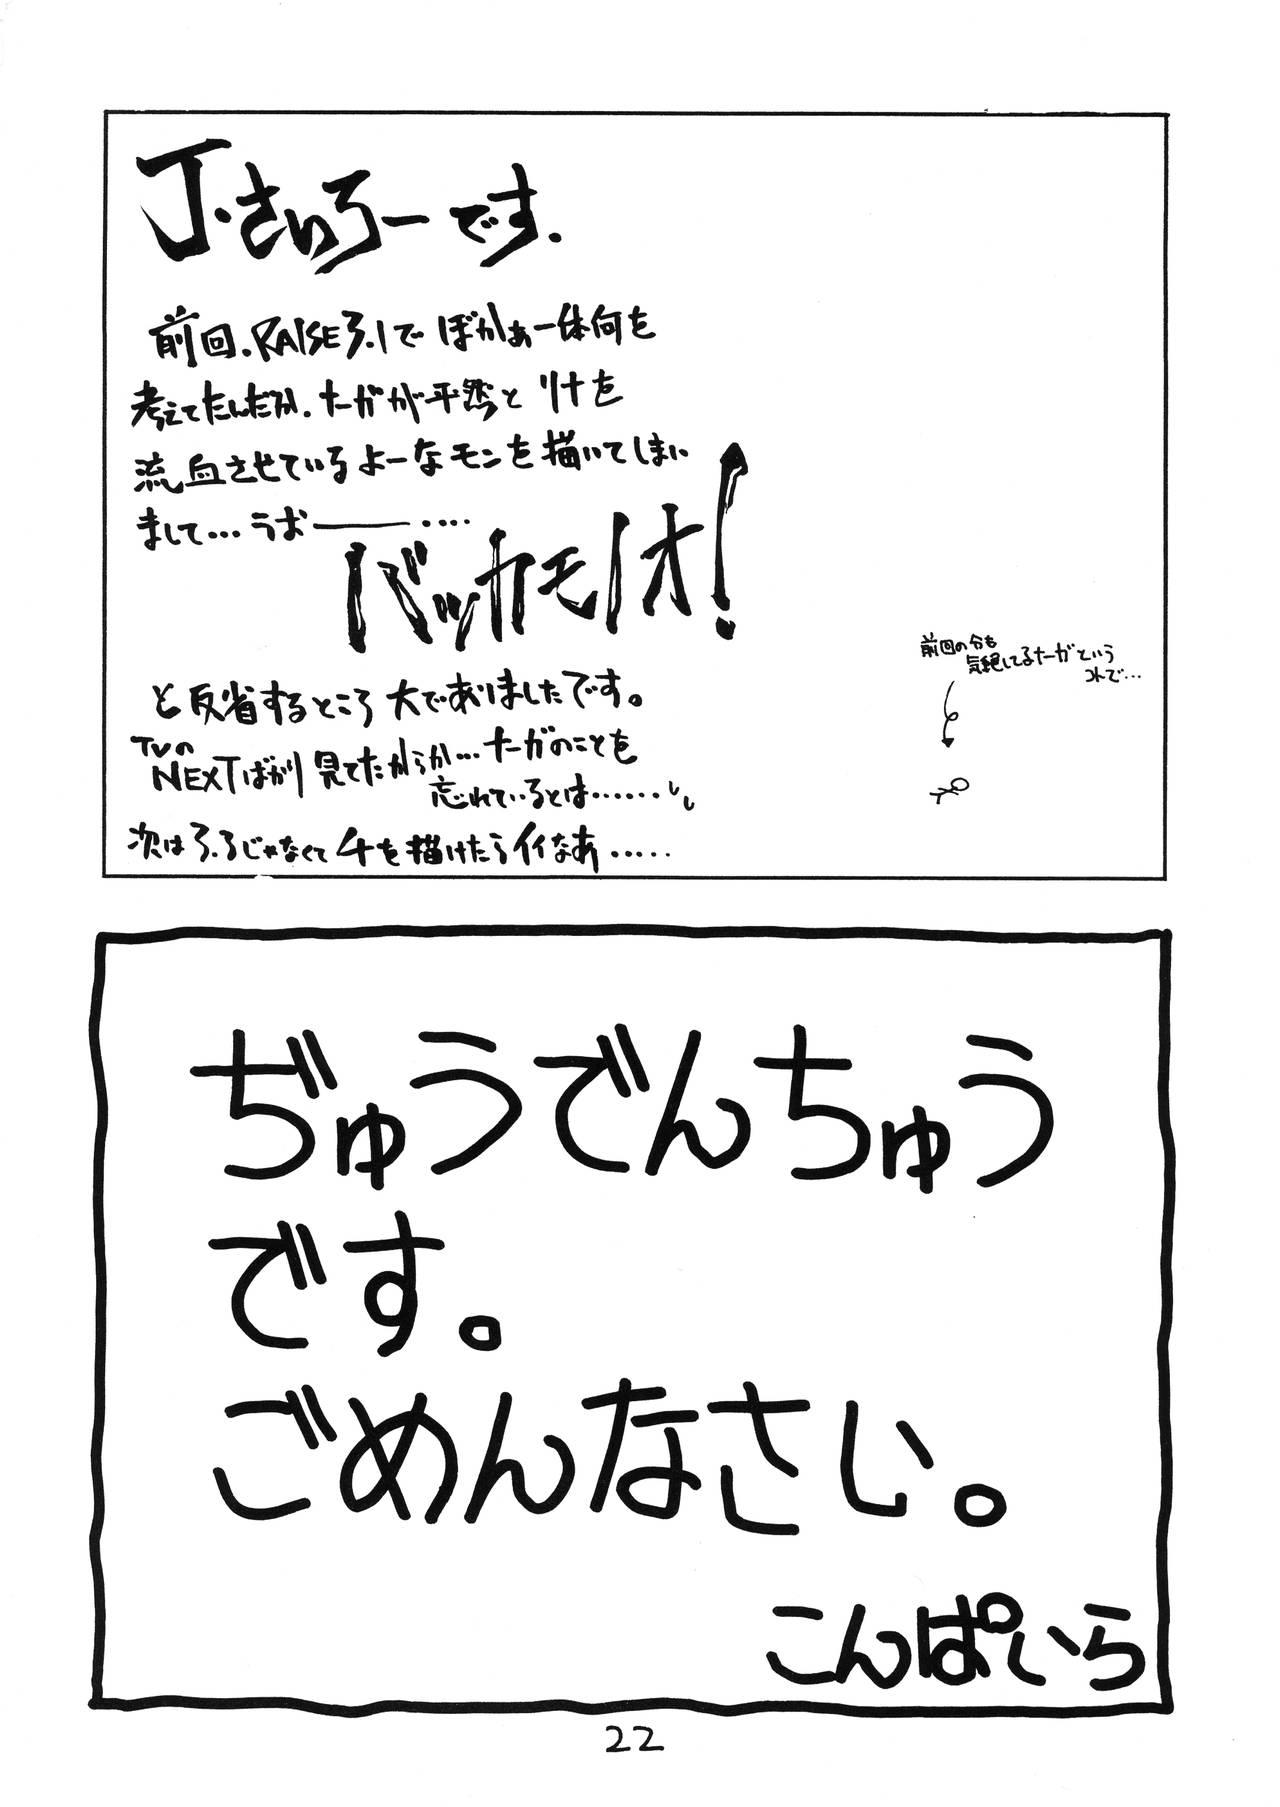 J・さいろーです.
前回.RAISE3.1でぼかぁ一体何を
考えてたんだか.ナーガが平然とリナを
流血させているよーなモンを描いてしまい
まして…うお――‥‥
バッカモノオ!
と反省するところ大でありましたです。
TVの
NEXTばかり見てたからか…ナーガのことを
忘れているとは……
次は3.3じゃなくて4を描けたらイイなあ……
前回の分も
気絶してるナーガという
コトで…
ぢゅうでんちゅう
です。
ごめんなさい。
こんぱいら
22